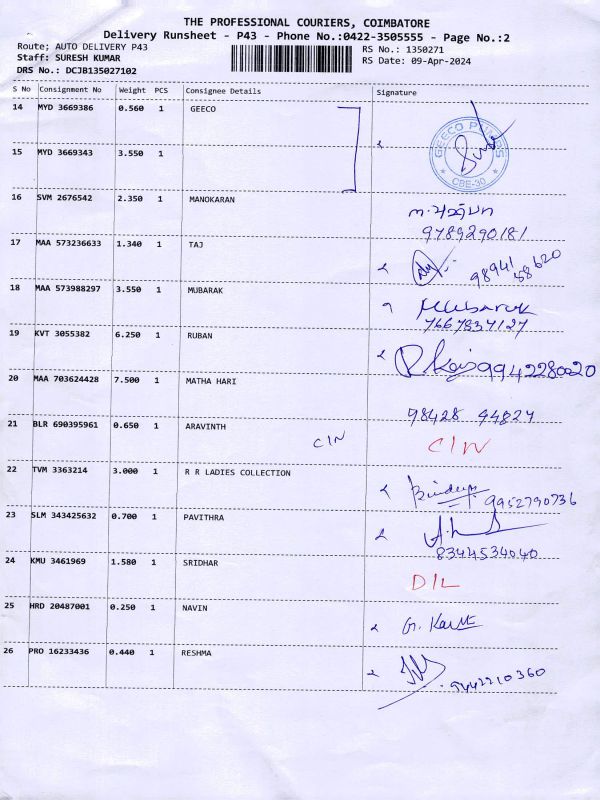 THE PROFESSIONAL COURIERS, COIMBATORE
Delivery Runsheet - P43 - Phone No.:0422-3505555 - Page No.:2
Route; AUTO DELIVERY P43 RS No.: 1350271
Staff: SURESH KUMAR RS Date: 09-Apr-2024
DRS No.: DCJB135027102
S No Consignment No Weight PCS Consignee Details Signature
14 MYD 3669386 0.560 1 GEECO
GEECO PUMPS
CBE-30
15 MYD 3669343 3.550 1
16 SVM 2676542 2.350 1 MANOKARAN
9789290181
17 MAA 573236633 1.340 1 TAJ
98941 58620
18 MAA 573988297 3.550 1 MUBARAK Mubarak
7667837127
19 KVT 3055382 6.250 1 RUBAN
9942280020
20 MAA 703624428 7.500 1 MATHA HARI
98428 44827
21 BLR 690395961 0.650 1 ARAVINTH
CIN CIN
22 TVM 3363214 3.000 1 R R LADIES COLLECTION
9952790736
23 SLM 343425632 0.700 1 PAVITHRA
8344534040
24 KMU 3461969 1.580 1 SRIDHAR
DIL
25 HRD 20487001 0.250 1 NAVIN
26 PRO 16233436 0.440 1 RESHMA
9442210360